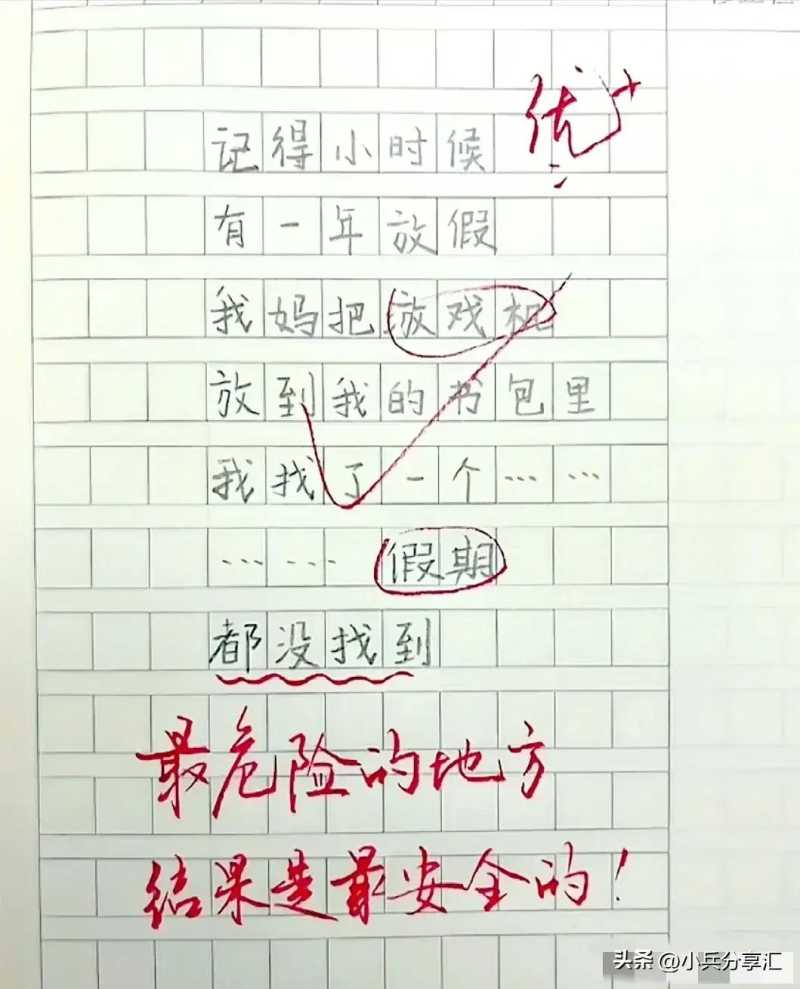 优+
记得小时候
有一年放假
我妈把游戏机
放到我的书包里
我找了一个……
……假期
都没找到
最危险的地方
结果是最安全的！
头条 @小兵分享汇